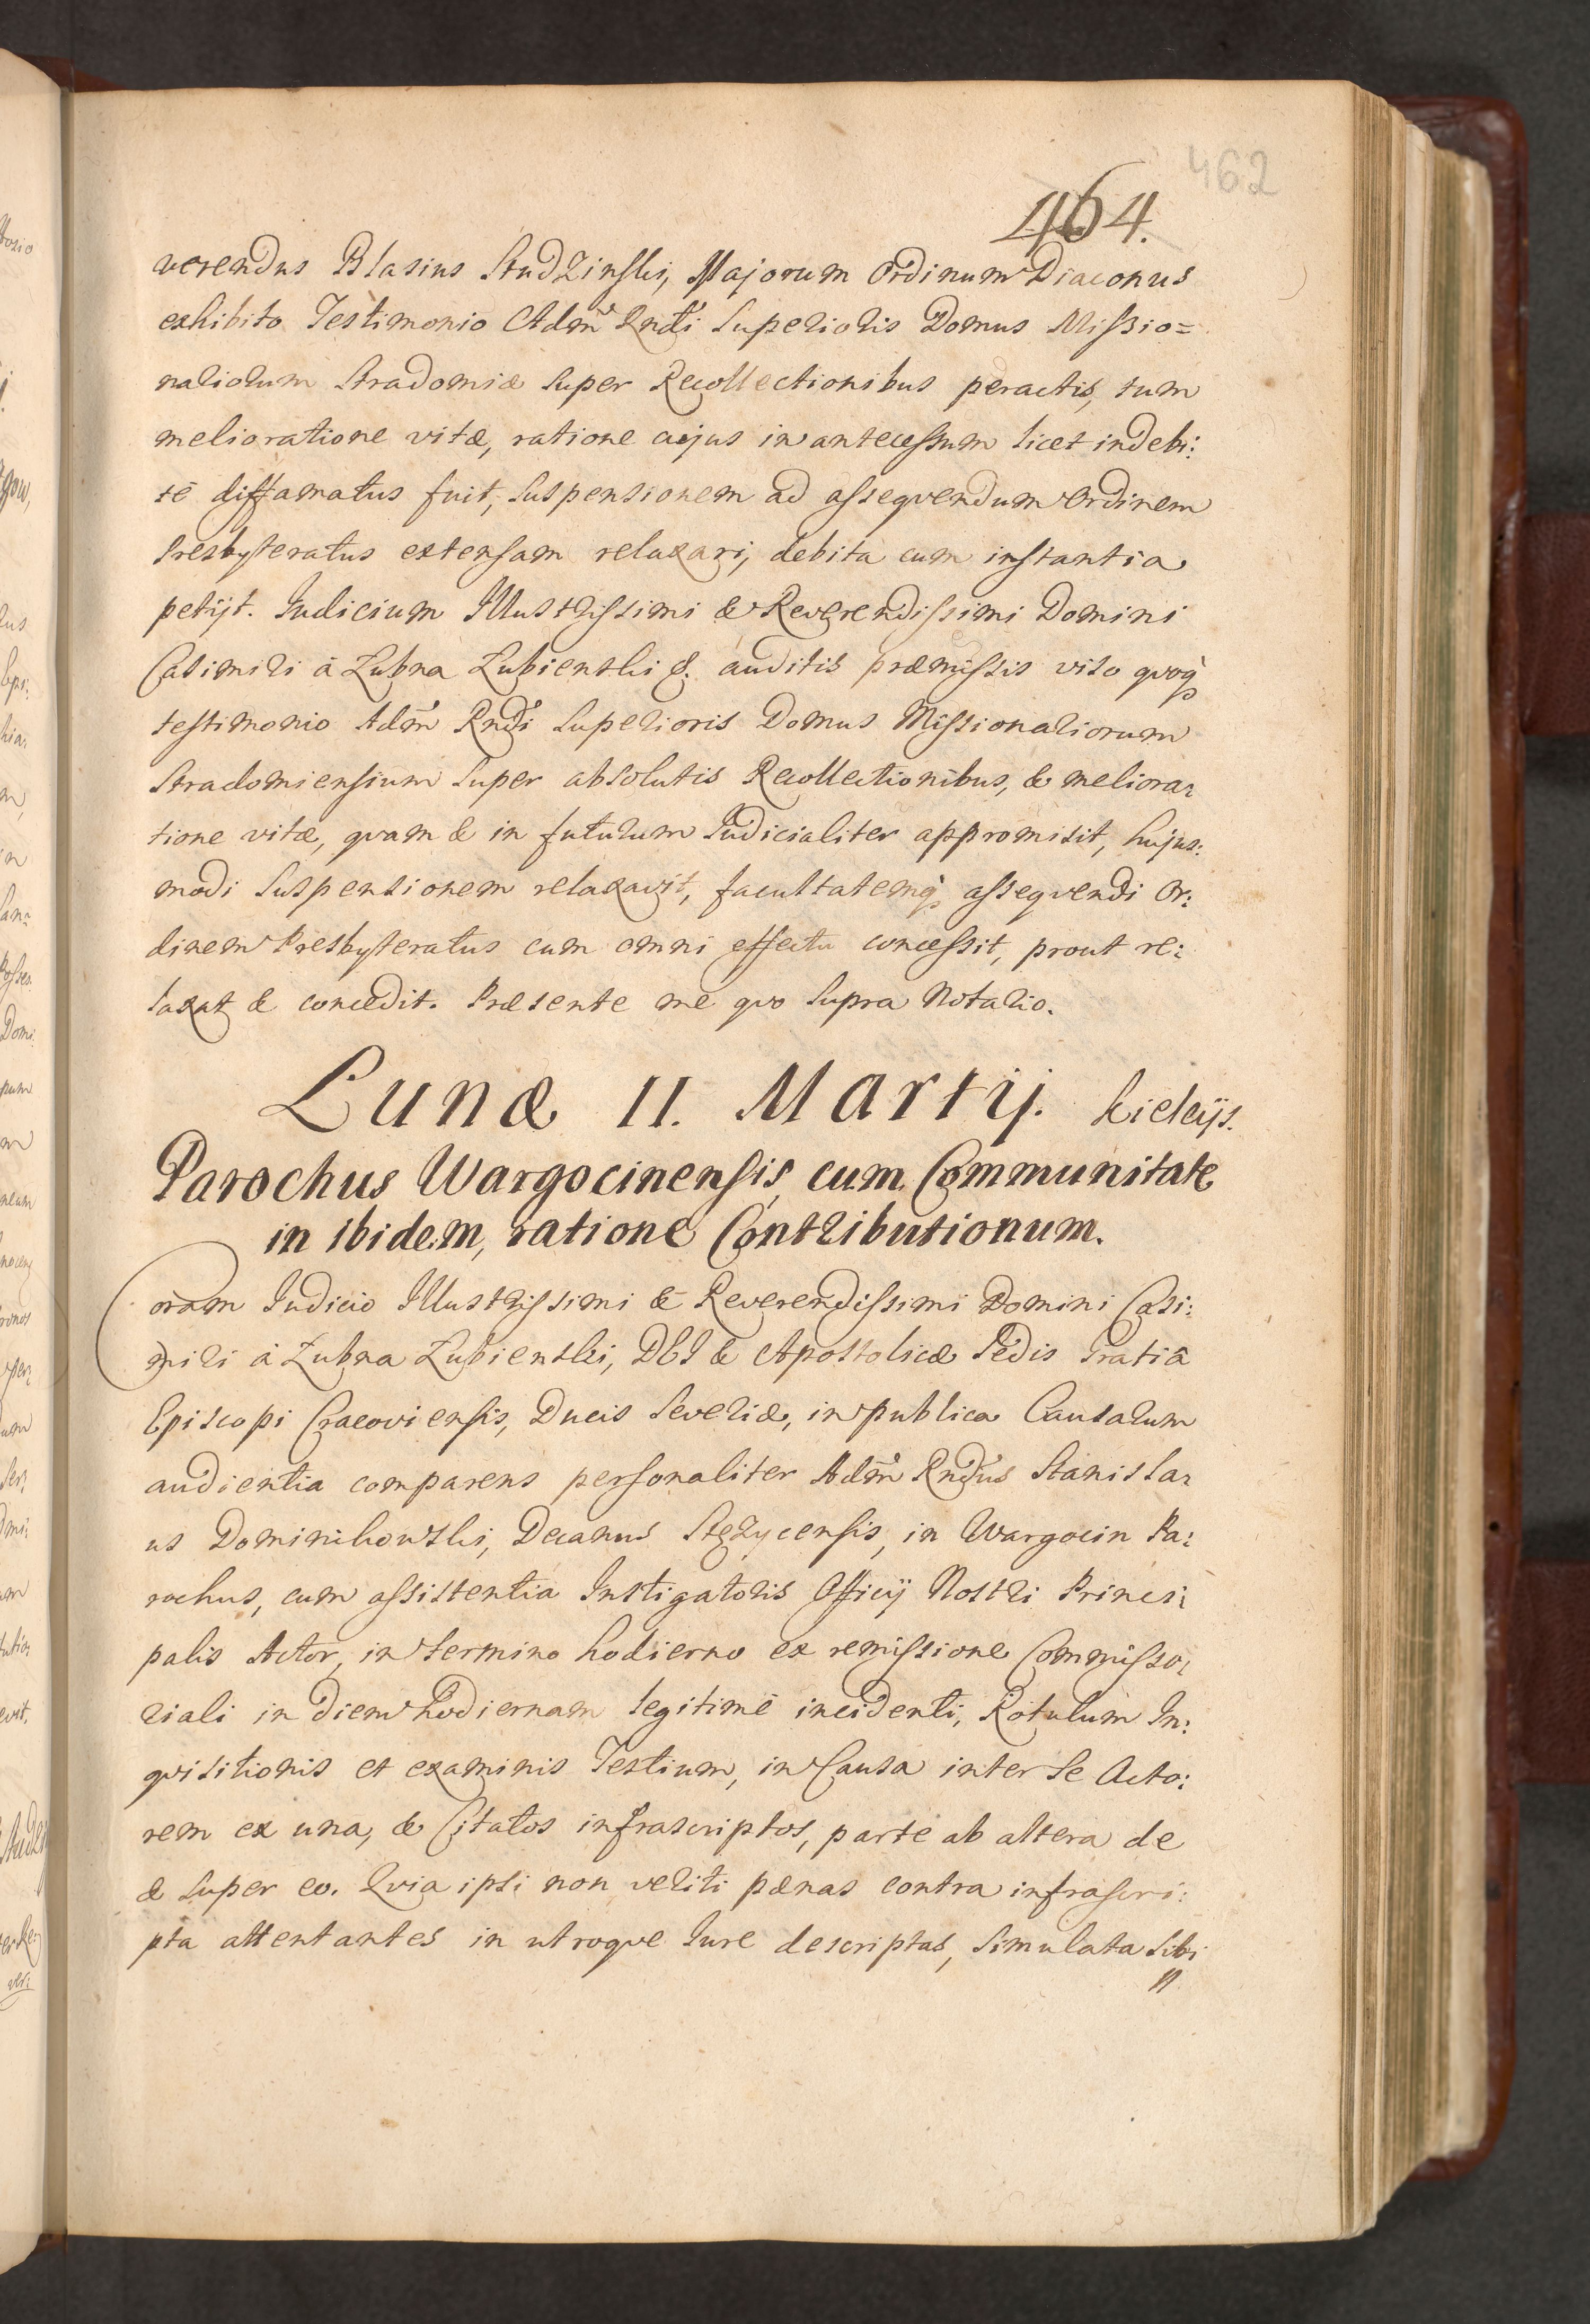 462
464.
verendus Blasius Studzinski, Majorum Ordinum Diaconus
exhibito Testimonio Adm̃ Rndi Superioris Domus Missio=
nariorum Stradomiæ super Recollectionibus peractis, tum
melioratione vitæ, ratione cujus in antecessum licet indebi:
tè diffamatus fuit, suspensionem ad assequendum Ordinem
Presbyteratus extensam relaxari, debita cum instantia
petijt. Iudicium Illustrissimi & Reverendissimi Domini
Casimiri à Łubna Łubienski &. auditis præmissis viso quoq̀
testimonio Adm̃ Rndi Superioris Domus Missionariorum
Stradomiensium super absolutis Recollectionibus, & meliora:
tione vitæ, quam & in futurum Iudicialiter appromisit, hujus:
modi suspensionem relaxavit, facultatemq̀ assequendi Or:
dinem Presbyteratus cum omni effectu concessit, prout re:
laxat & concedit. Præsente me quo supra Notario.
Lunæ 11. Martij. Kielcijs.
Parochus Wargocinensis, cum Communitate
in ibidem, ratione Contributionum.
Coram Iudicio Illustrissimi & Reverendissimi Domini Casi:
miri à Łubna Łubienski, DEI & Apostolicæ Sedis Gratiâ
Episcopi Cracoviensis, Ducis Severiæ, in publica Causarum
audientia comparens personaliter Adm̃ Rndus Stanisla:
us Dominikowski, Decanus Stężycensis, in Wargocin Pa:
rochus, cum assistentia Instigatoris Officij Nostri Princi:
palis Actor, in termino hodierno ex remissione Commisso:
riali in diem hodiernam legitimè incidenti, Rotulum In:
quisitionis et examinis Testium, in Causa inter se Acto:
rem ex una, & Citatos infrascriptos, parte ab altera de
& super eo. Quia ipsi non veriti pænas contra infrascri:
pta attentantes in utroque Iure descriptas, simulata sibi